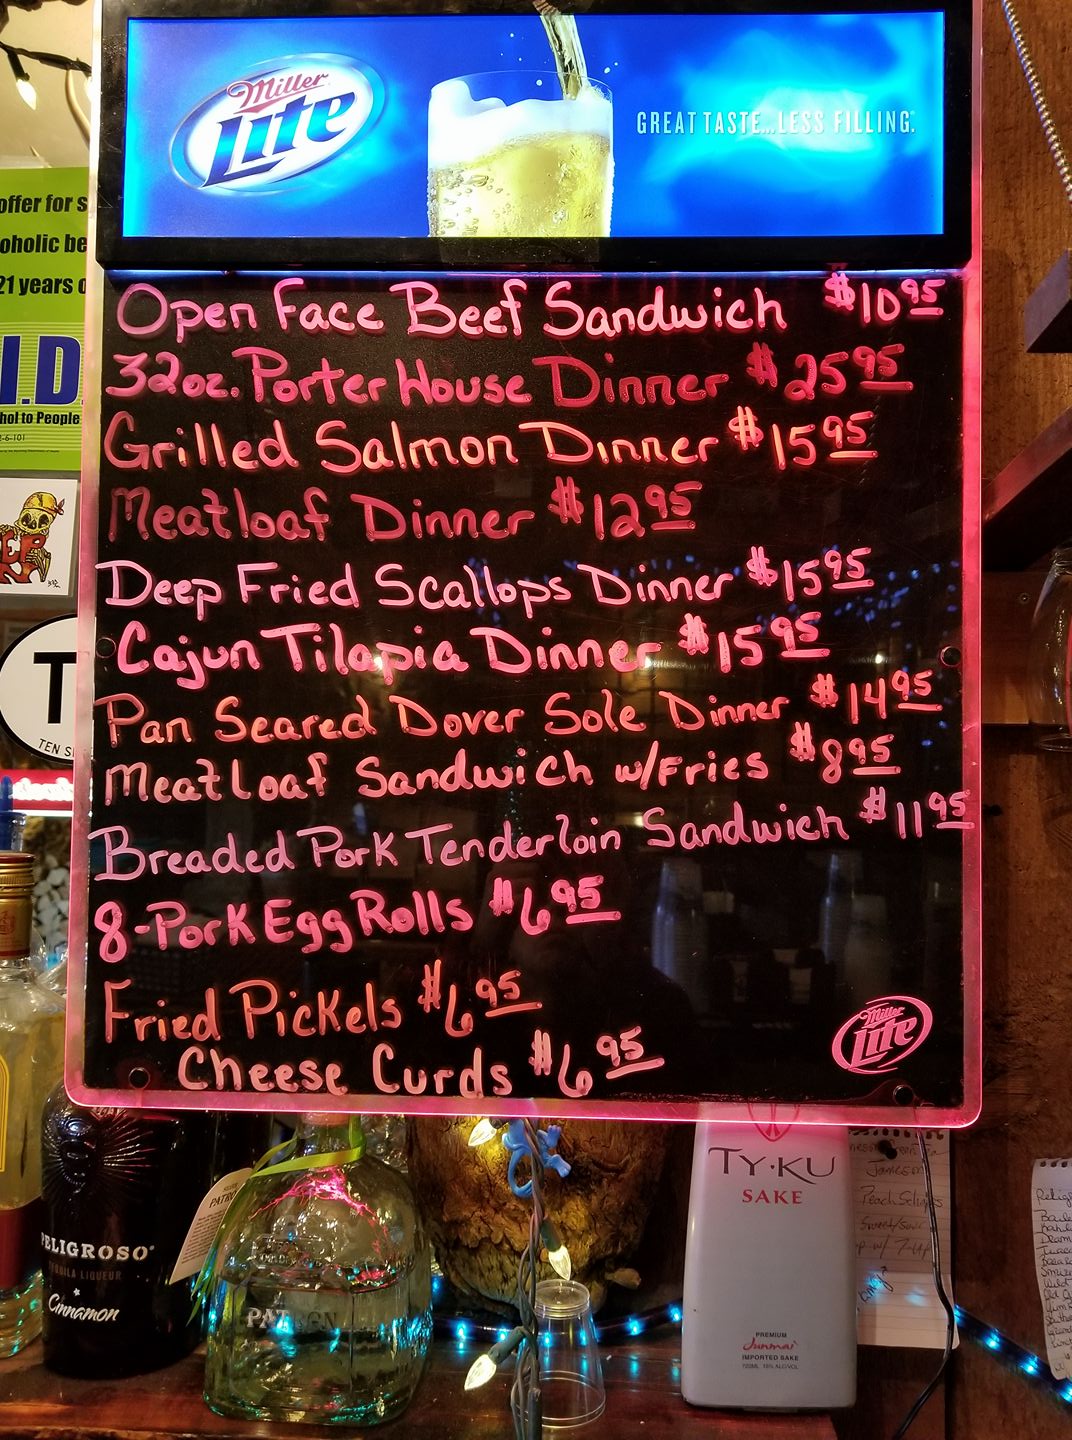 Miller
Lite
GREAT TASTE...LESS FILLING.
offer for s
oholic be
21 years o
I.D.
hol to People
-6-101
Open Face Beef Sandwich $10.95
32oz. Porter House Dinner $25.95
Grilled Salmon Dinner $15.95
Meatloaf Dinner $12.95
Deep Fried Scallops Dinner $15.95
Cajun Tilapia Dinner $15.95
Pan Seared Dover Sole Dinner $14.95
Meatloaf Sandwich w/Fries $8.95
Breaded Pork Tenderloin Sandwich $11.95
8-Pork Egg Rolls $6.95
Fried Pickels $6.95
Cheese Curds $6.95
Miller
Lite
T
TEN S
PELIGROSO
TEQUILA LIQUEUR
Cinnamon
PATR
PATRON
TY·KU
SAKE
PREMIUM
Junmai
IMPORTED SAKE
720ML 15% ALC/VOL
Jameson
Peach